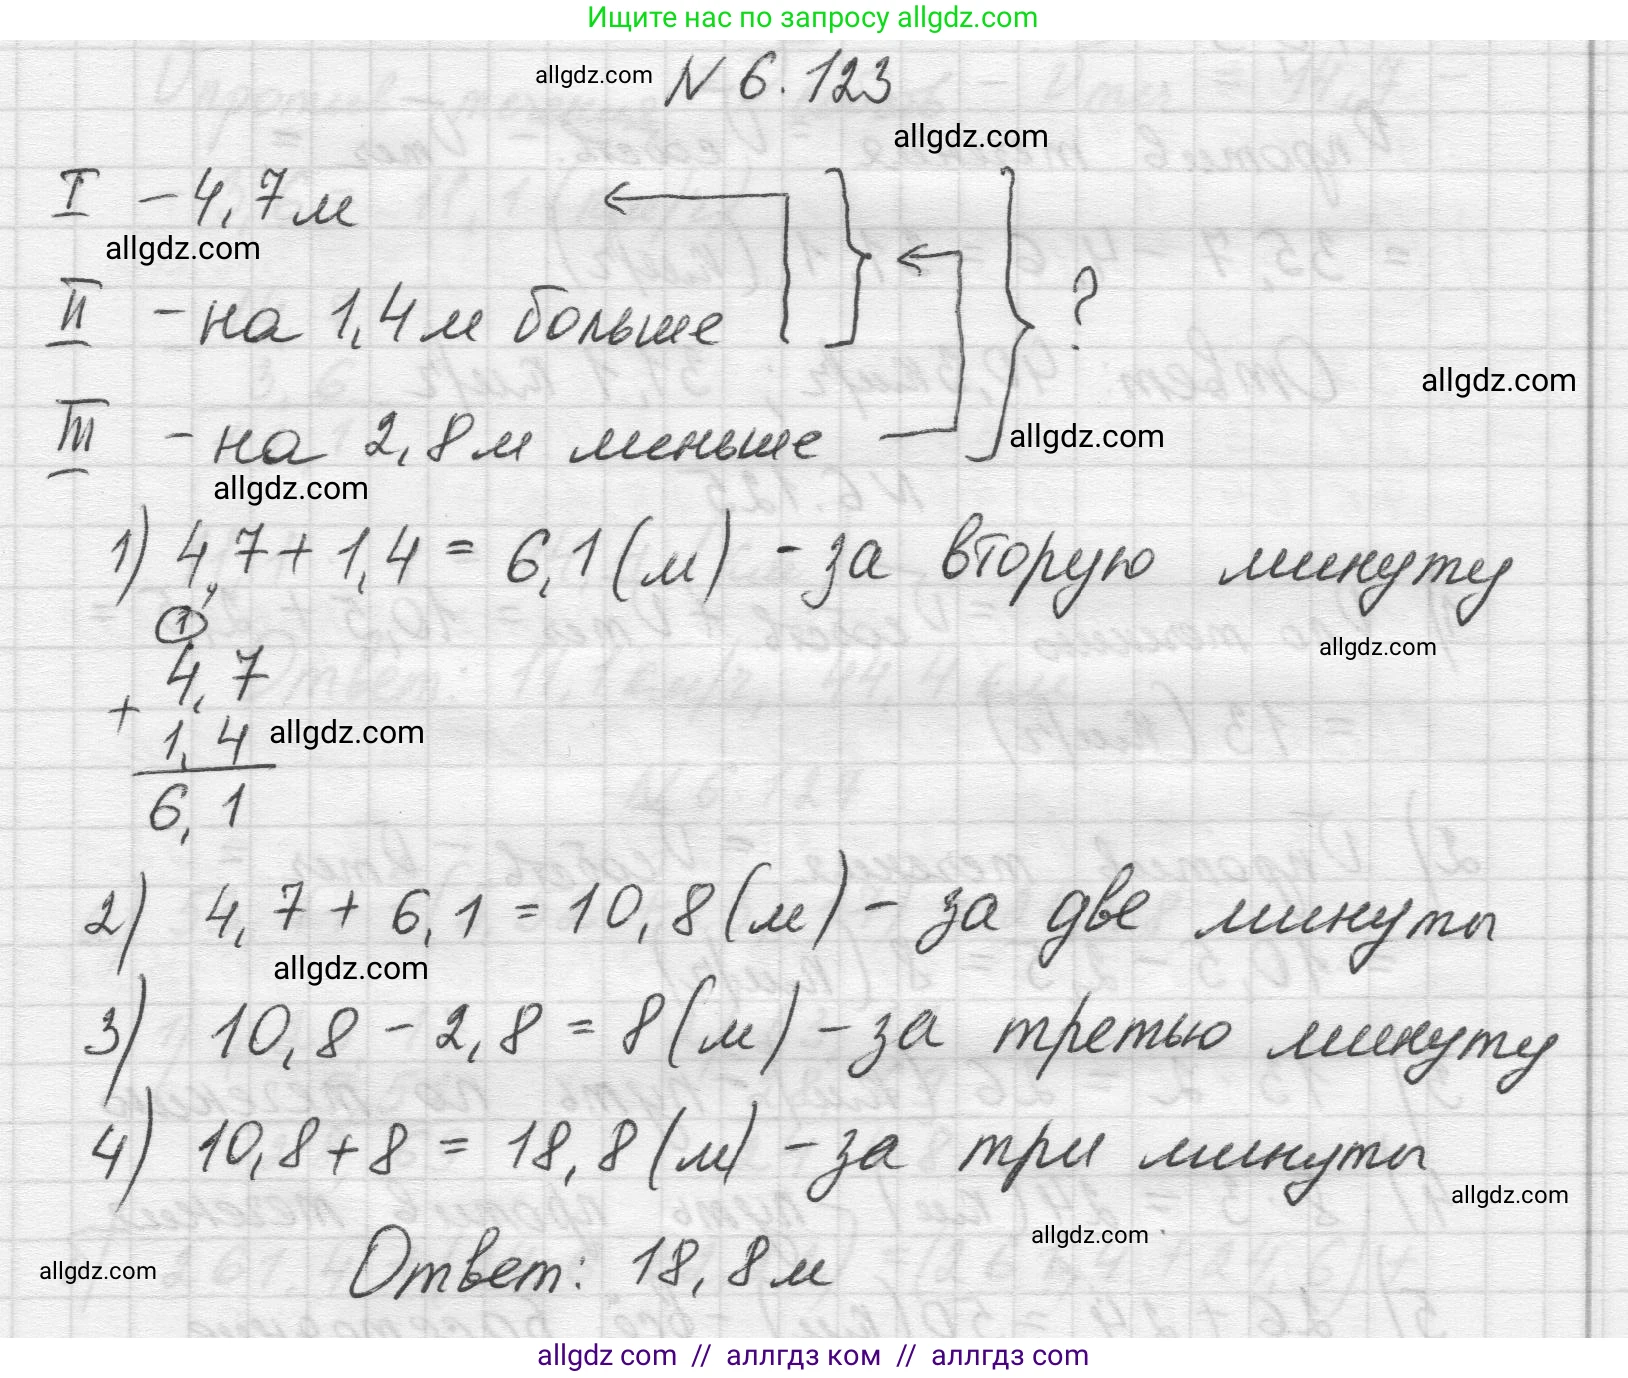 Ищите нас по запросу allgdz.com
allgdz.com
N 6.123
allgdz.com
I - 4,7 м
allgdz.com
II - на 1,4 м больше
?
allgdz.com
III - на 2,8 м меньше
allgdz.com
allgdz.com
1) 4,7 + 1,4 = 6,1 (м) - за вторую минуту
1
allgdz.com
4,7
+
1,4
allgdz.com
6,1
2) 4,7 + 6,1 = 10,8 (м) - за две минуты
allgdz.com
3) 10,8 - 2,8 = 8 (м) - за третью минуту
4) 10,8 + 8 = 18,8 (м) - за три минуты
allgdz.com
allgdz.com
allgdz.com
Ответ: 18,8 м
allgdz com // аллгдз ком // аллгdз com